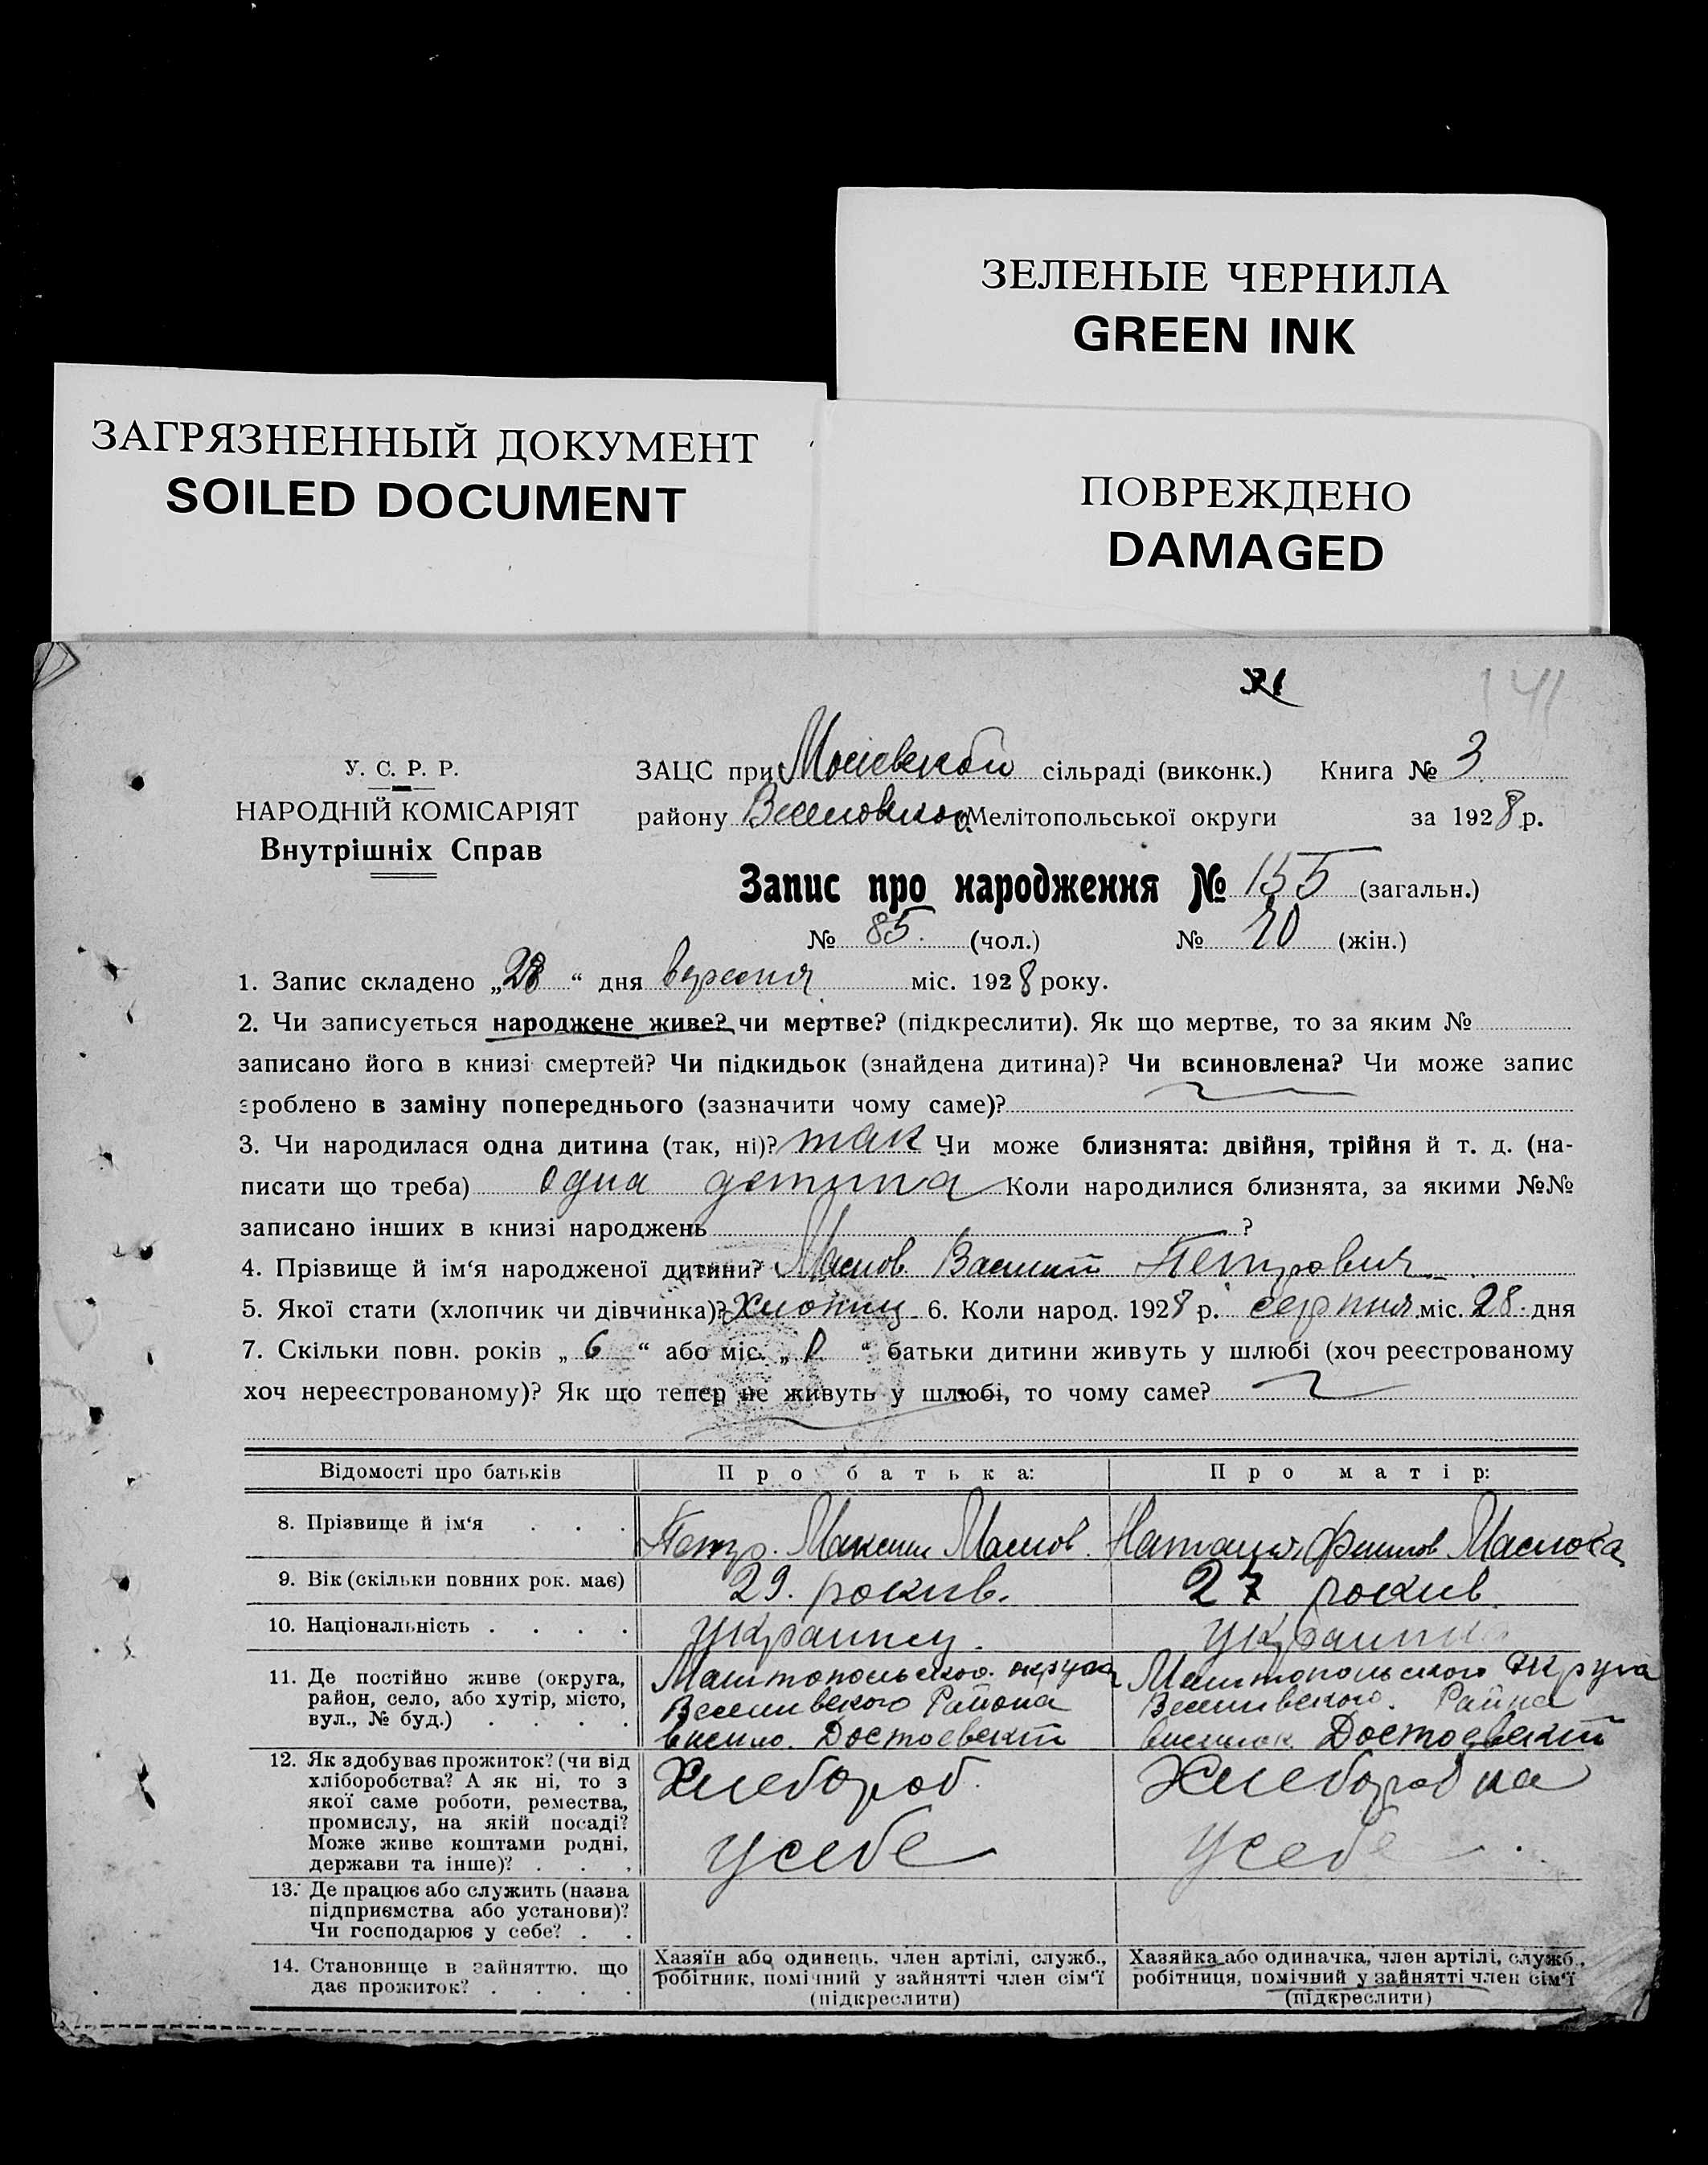 ЗЕЛЕНЫЕ ЧЕРНИЛА
GREEN INK
ЗАГРЯЗНЕННЫЙ ДОКУМЕНТ
SOILED DOCUMENT
ПОВРЕЖДЕНО
DAMAGED
141
У. С. Р. Р.
НАРОДНІЙ КОМІСАРІЯТ
Внутрішніх Справ
ЗАЦС при сільраді (виконк.) Книга № 3
району Мелітопольської округи за 1928 р.
Запис про народження № 155 (загальн.)
№ 85. (чол.) № 70 (жін.)
1. Запис складено „28“ дня вересня міс. 1928 року.
2. Чи записується народжене живе? чи мертве? (підкреслити). Як що мертве, то за яким №
записано його в книзі смертей? Чи підкидьок (знайдена дитина)? Чи всиновлена? Чи може запис
зроблено в заміну попереднього (зазначити чому саме)?
3. Чи народилася одна дитина (так, ні)? так Чи може близнята: двійня, трійня й т. д. (на-
писати що треба) одна детина Коли народилися близнята, за якими №№
записано інших в книзі народжень ?
4. Прізвище й ім‘я народженої дитини? Маслов Василий Петрович
5. Якої стати (хлопчик чи дівчинка)? Хлопиц 6. Коли народ. 1928 р. серпня міс. 28 дня
7. Скільки повн. років „ 6 “ або міс. „ “ батьки дитини живуть у шлюбі (хоч реєстрованому
хоч нереєстрованому)? Як що тепер не живуть у шлюбі, то чому саме?
Відомості про батьків Про батька: Про матір:
8. Прізвище й ім‘я . . . Петр. Максим Маслов. Наталия Маслова
9. Вік (скільки повних рок. має) 29. рокив. 27 рокив.
10. Національність . . . . Украинец. Украинка
11. Де постійно живе (округа,
район, село, або хутір, місто,
вул., № буд.) . . . .
Мелитопольского округа
Веселивского Района
Достоевский
Мелитопольского Округа
Веселивского. Района
виселок Достоевский
12. Як здобуває прожиток? (чи від
хліборобства? А як ні, то з
якої саме роботи, ремества,
промислу, на якій посаді?
Може живе коштами родні,
держави та інше)? . . .
Хлебороб.
Усебе
Хлеборобка
Усебе
13. Де працює або служить (назва
підприємства або установи)?
Чи господарює у себе? . .
14. Становище в зайняттю, що
дає прожиток? . . . .
Хазяїн або одинець, член артілі, служб.,
робітник, помічний у зайнятті член сім‘ї
(підкреслити)
Хазяйка або одиначка, член артілі, служб.,
робітниця, помічний у зайнятті член сім‘ї
(підкреслити)